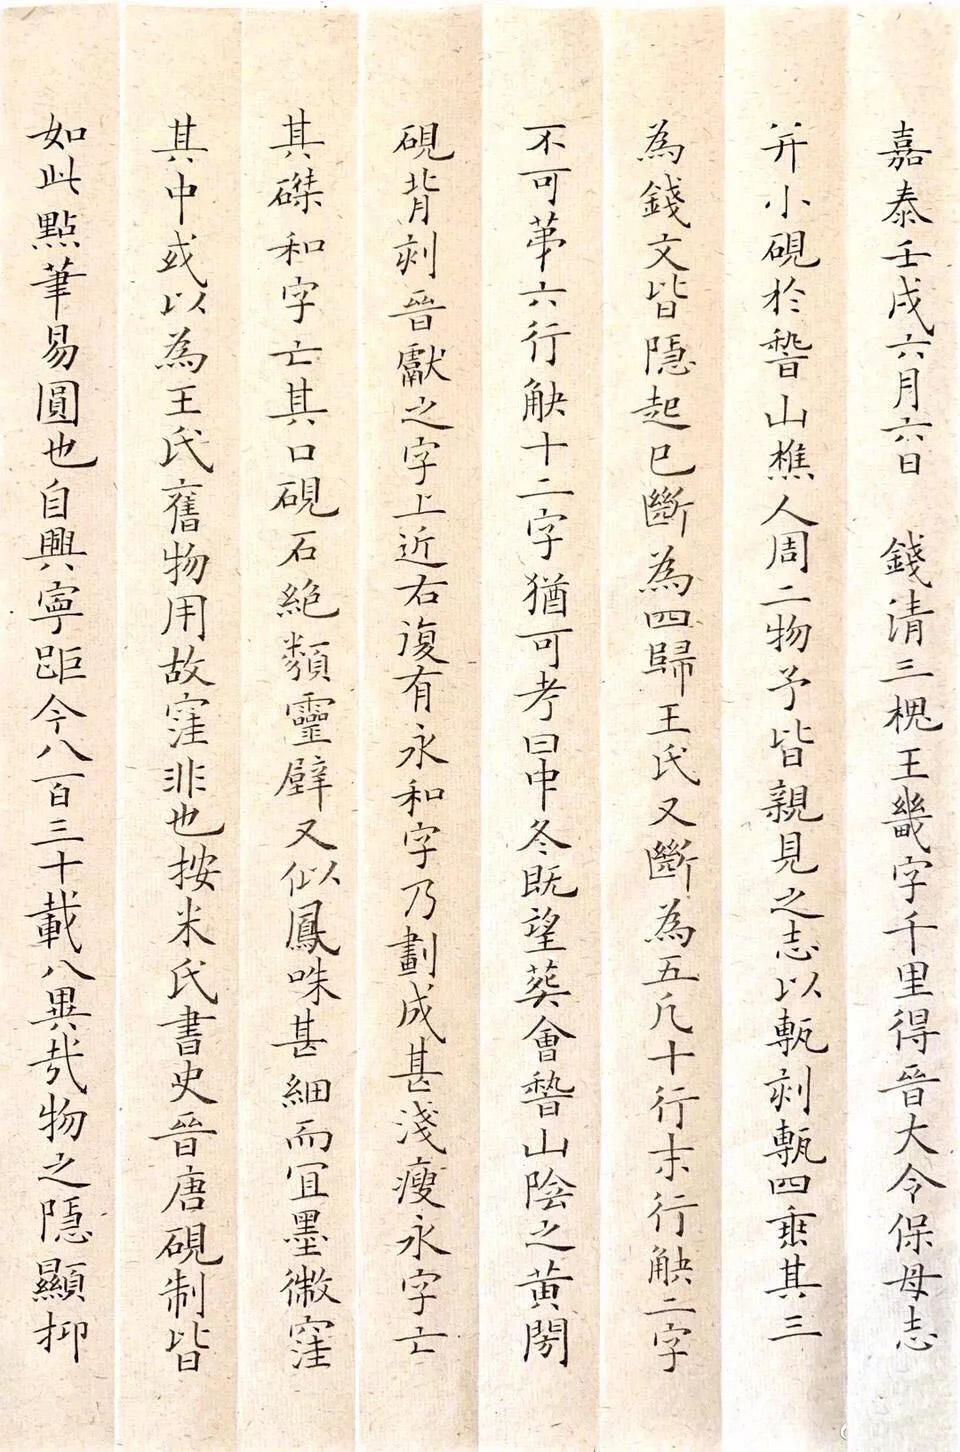 嘉泰壬戌六月六日　錢清三槐王畿字千里得晉大令保母志
并小硯於嵇山樵人周二物予皆親見之志以甎刻甎四垂其三
為錢文皆隱起已斷為四歸王氏又斷為五凡十行末行缺二字
不可苐六行觖十二字猶可考曰中冬既望葬會嵇山陰之黃閍
硯背刻晉獻之字上近右復有永和字乃劃成甚淺瘦永字亡
其磔和字亡其口硯石絕類靈壁又似鳳咮甚細而宜墨微窪
其中或以為王氏舊物用故窪非也按米氏書史晉唐硯制皆
如此點筆易圓也自興寧距今八百三十載八異㢤物之隱顯抑